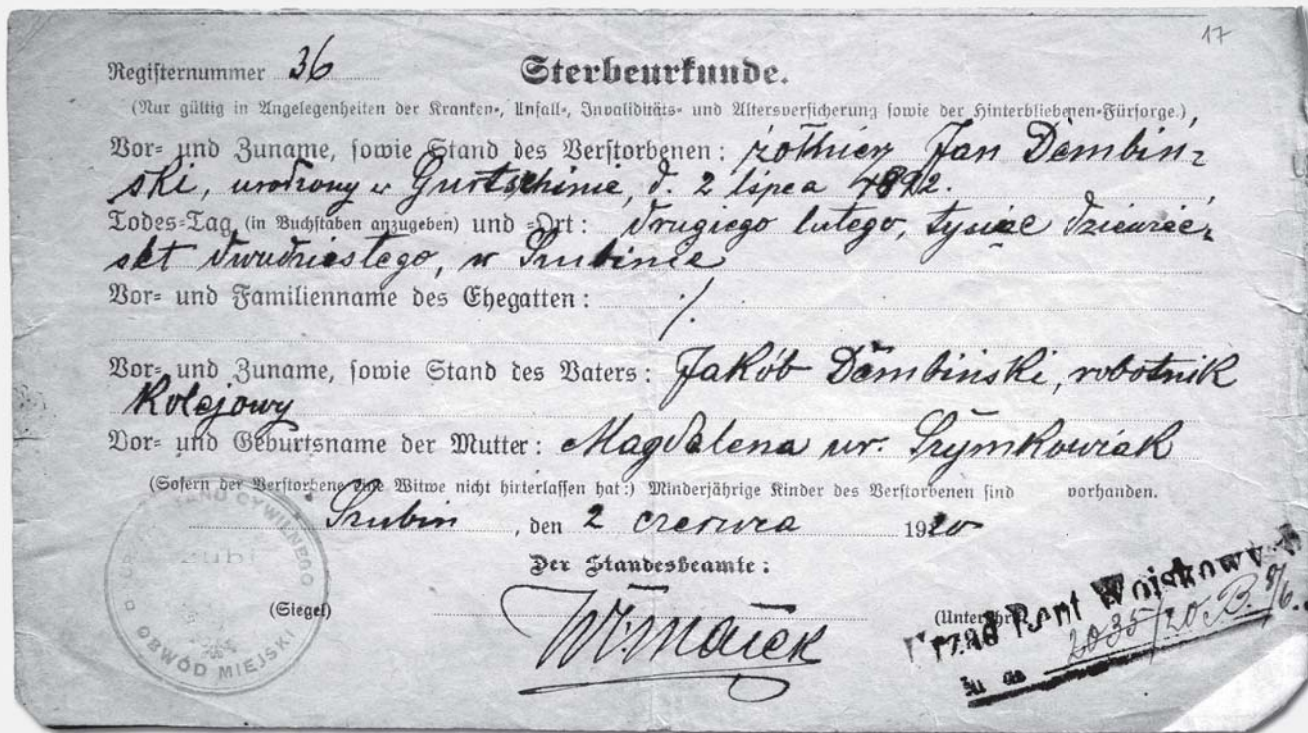 17
Registernummer 36 Sterbeurkunde.
(Nur gültig in Angelegenheiten der Kranken-, Unfall-, Invaliditäts- und Altersversicherung sowie der Hinterbliebenen-Fürsorge.)
Vor- und Zuname, sowie Stand des Verstorbenen: żołnierz Jan Dembin-
ski, urodzony w Gurtschinie, d. 2 lipca 1892.
Todes-Tag (in Buchstaben anzugeben) und -Ort: drugiego lutego, tysiąc dziewięć-
set dwudziestego, w Szubinie
Vor- und Familienname des Ehegatten: ./.
Vor- und Zuname, sowie Stand des Vaters: Jakób Dembinski, robotnik
kolejowy
Vor- und Geburtsname der Mutter: Magdalena ur. Szymkowiak
(Sofern der Verstorbene eine Witwe nicht hinterlassen hat:) Minderjährige Kinder des Verstorbenen sind vorhanden.
Szubin, den 2 czerwca 1920
Der Standesbeamte:
(Siegel) (Unterschrift)
CYWILNEGO
zubi
OBWÓD MIEJSKI
Urząd Rent Wojskowy
2035/20 B. 9/6.